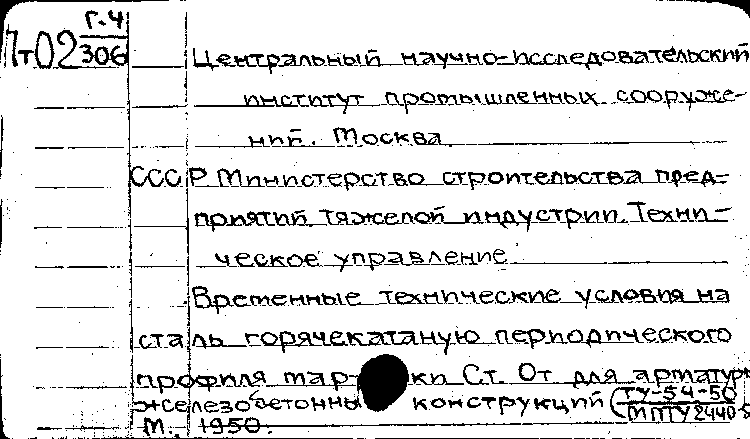 Г.Ч
Пт02 306
Центральный научно-исследовательский
институт промышленных сооруже-
ний. Москва.
СССР Министерство строительства пред-
приятий тяжелой индустрии. Техни-
ческое управление
Временные технические условия на
сталь горячекатаную периодического
профиля мар- ки Ст. От для арматуры
железобетонны конструкций (ТУ-54-50
МПТУ 2440-5
М., 1950.